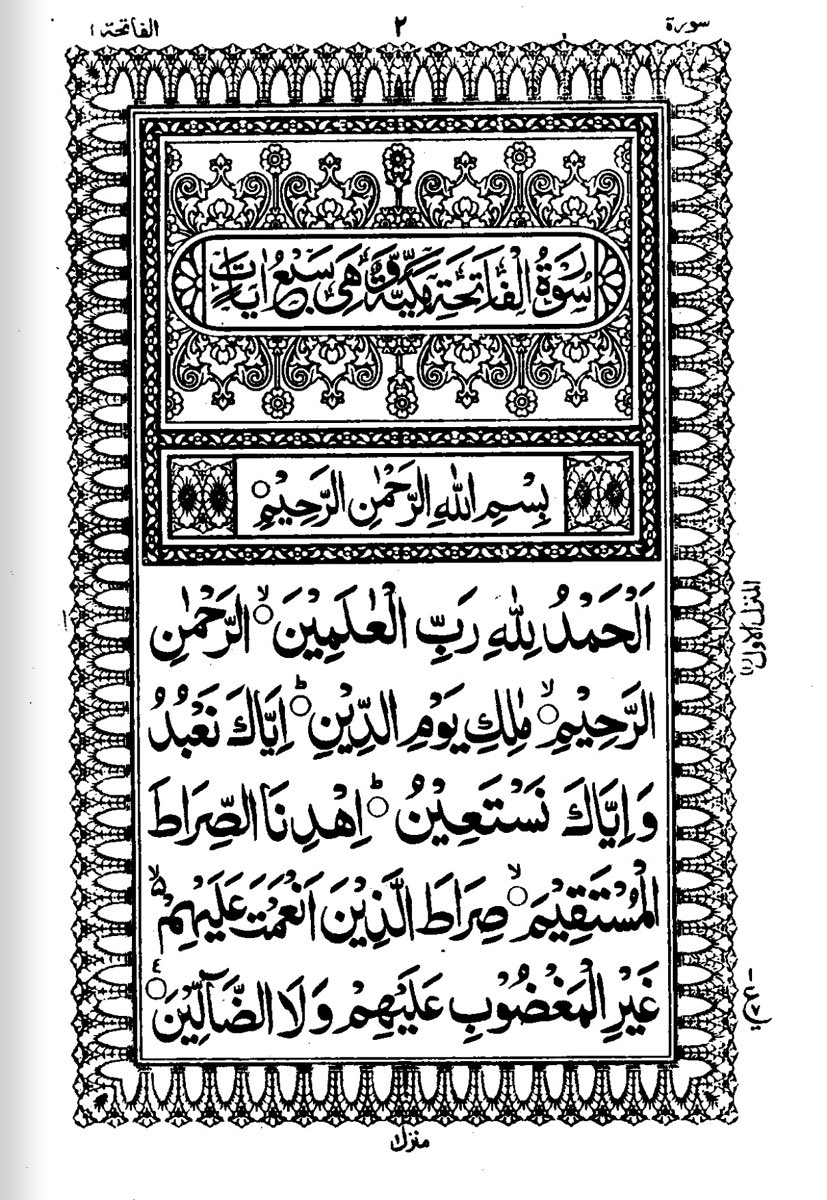 سورة ٢ الفاتحة ١
سُوْرَةُ الْفَاتِحَةِ مَكِّيَّةٌ وَّهِيَ سَبْعُ اٰيَاتٍ
بِسْمِ اللّٰهِ الرَّحْمٰنِ الرَّحِيْمِ ۝
اَلْحَمْدُ لِلّٰهِ رَبِّ الْعٰلَمِيْنَ ۝ۙ الرَّحْمٰنِ
الرَّحِيْمِ ۝ۙ مٰلِكِ يَوْمِ الدِّيْنِ ۝ؕ اِيَّاكَ نَعْبُدُ
وَاِيَّاكَ نَسْتَعِيْنُ ۝ؕ اِهْدِنَا الصِّرَاطَ
الْمُسْتَقِيْمَ ۝ۙ صِرَاطَ الَّذِيْنَ اَنْعَمْتَ عَلَيْهِمْ ۙ۵
غَيْرِ الْمَغْضُوْبِ عَلَيْهِمْ وَلَا الضَّآلِّيْنَ ۝
المنزل الاول (١)
منزل